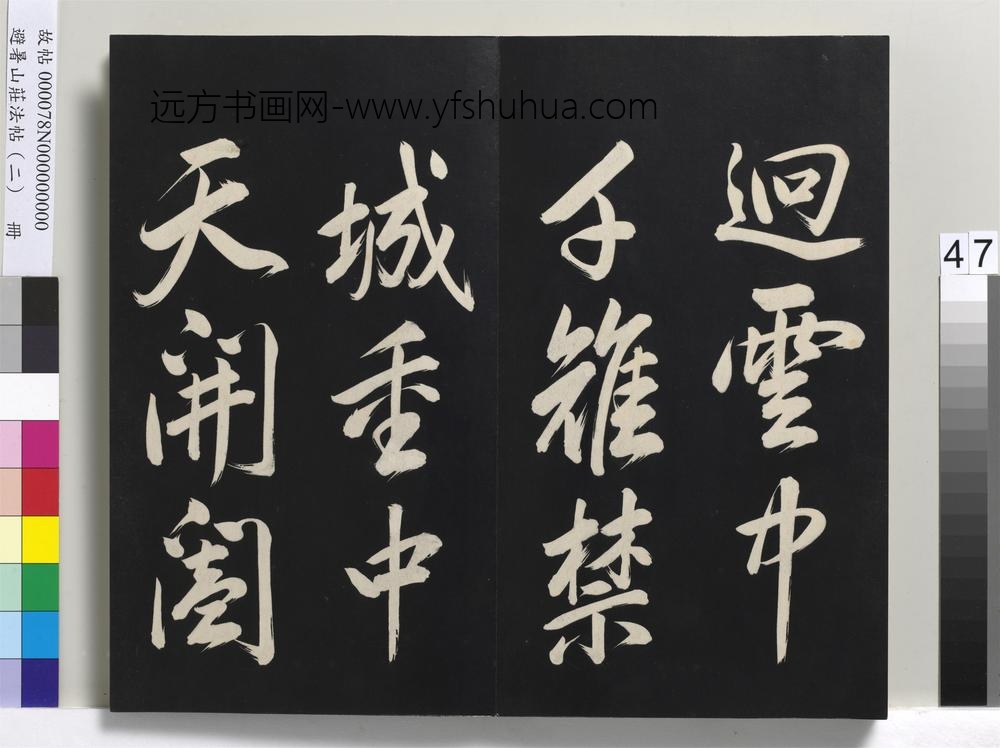 故帖 000078N000000000
避暑山莊法帖(二) 冊
远方书画网-www.yfshuhua.com
迥雲中
千雉禁
城重中
天開
47